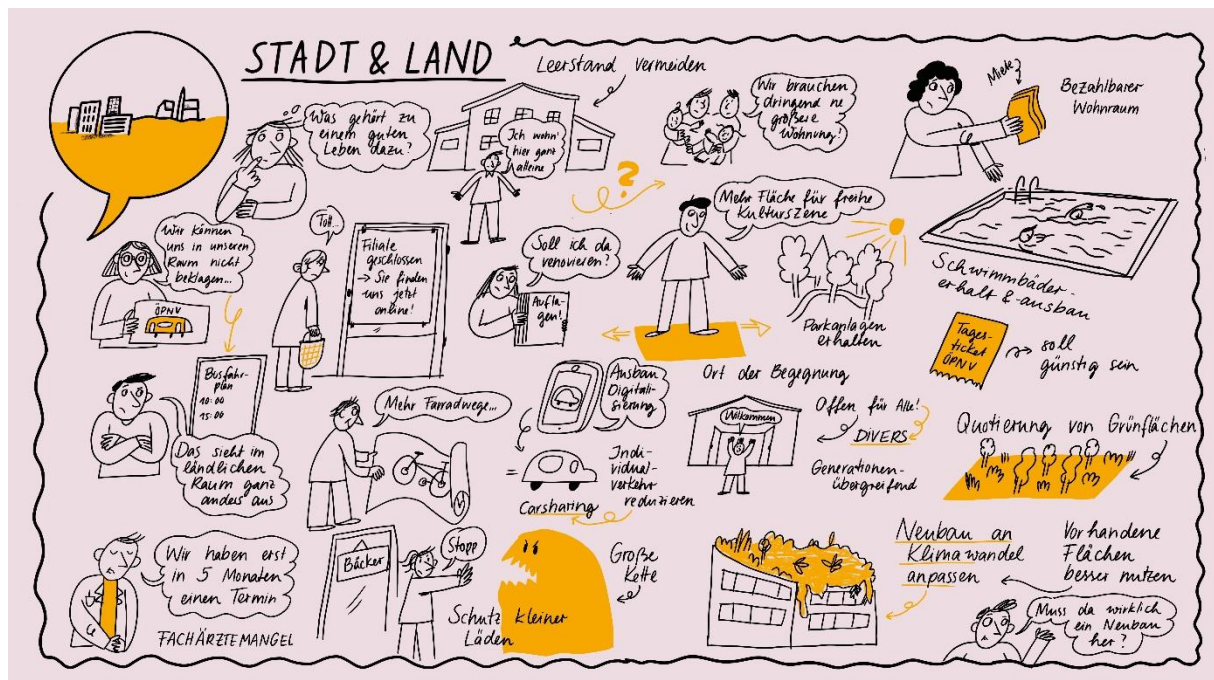 STADT & LAND
Leerstand vermeiden
Was gehört zu
einem guten
Leben dazu?
Ich wohn'
hier ganz
alleine
Wir brauchen
dringend ne
größere
Wohnung!
Miete
Bezahlbarer
Wohnraum
Wir können
uns in unseren
Raum nicht
beklagen...
ÖPNV
Toll...
Filiale
geschlossen
→ Sie finden
uns jetzt
online!
Soll ich da
renovieren?
Aufla-
gen!
?
Mehr Fläche für freihe
Kulturszene
Parkanlagen
erhalten
Schwimmbäder-
erhalt & -ausbau
Tages-
ticket
ÖPNV
soll
günstig sein
Busfahr-
plan
10:00
15:00
Das sieht im
ländlichen
Raum ganz
anders aus
Mehr Farradwege...
Ausbau
Digitali-
sierung
=
Carsharing
Indi-
vidual-
verkehr
reduzieren
Ort der Begegnung
Willkommen
Offen für Alle!
DIVERS
Generationen-
übergreifend
Quotierung von Grünflächen
Wir haben erst
in 5 Monaten
einen Termin
FACHÄRZTEMANGEL
Bäcker
Stopp
Schutz kleiner
Läden
Große
Kette
Neubau an
Klimawandel
anpassen
Vorhandene
Flächen
besser nutzen
Muss da wirklich
ein Neubau
her?